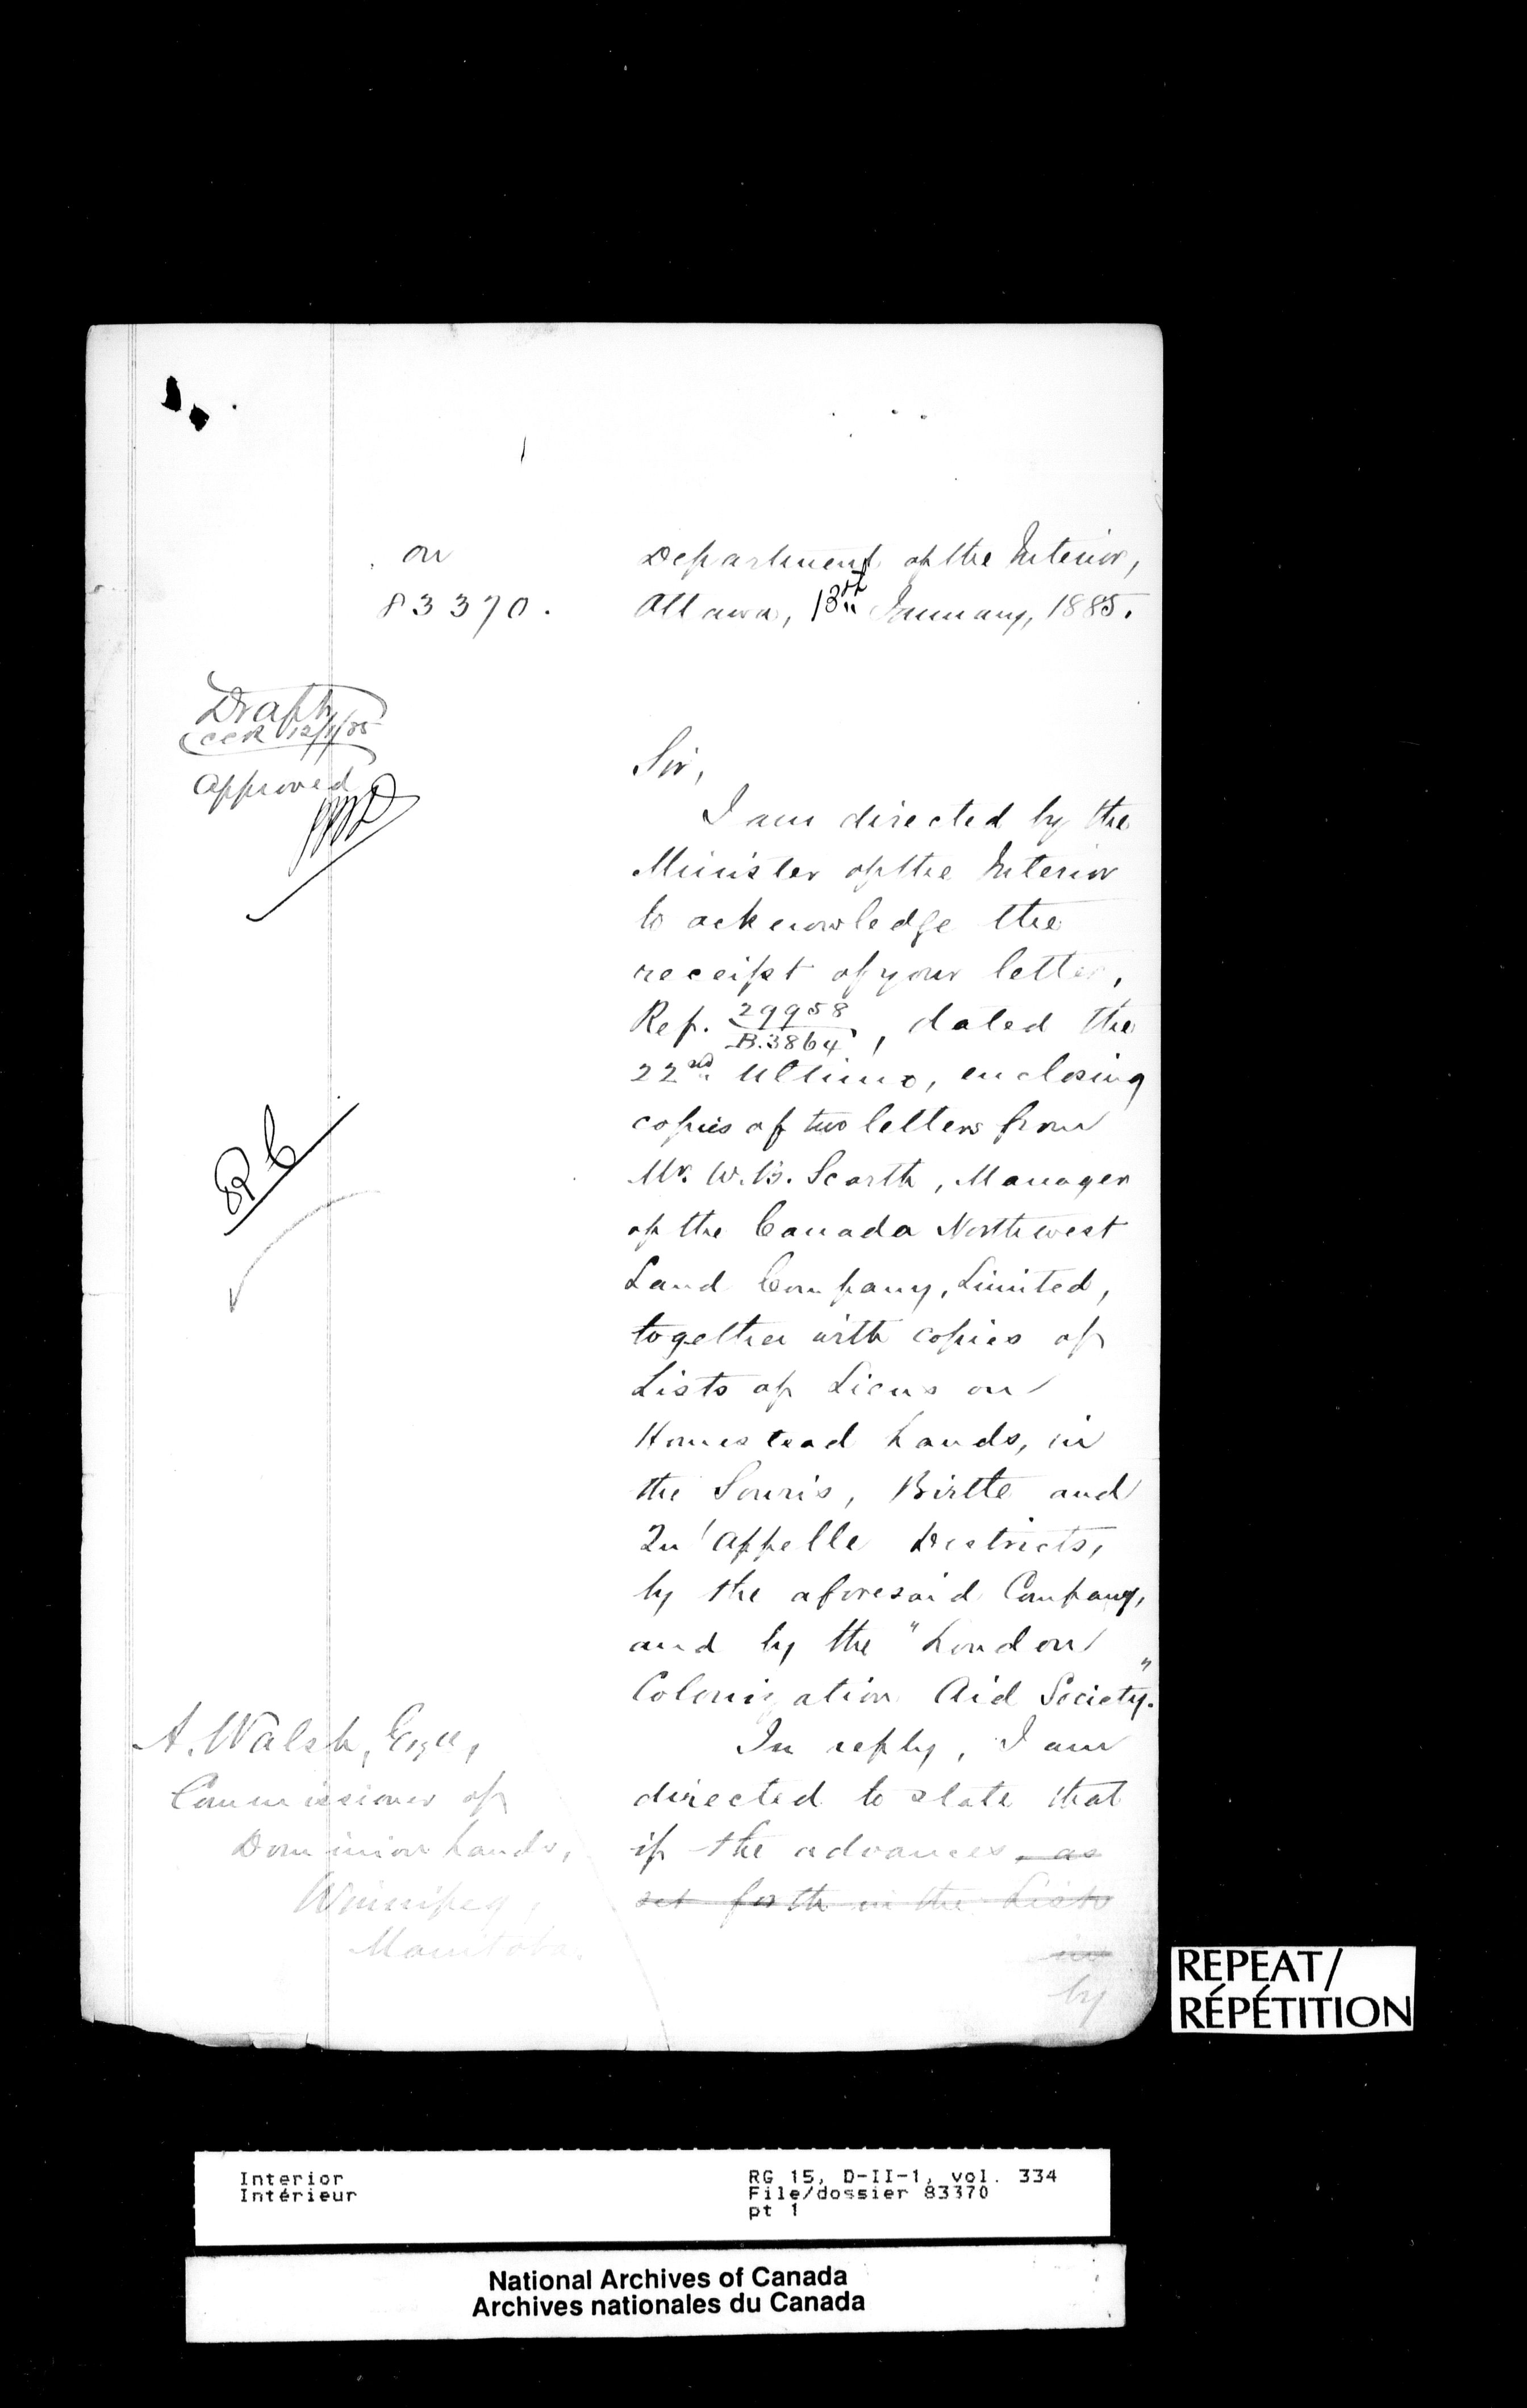 on
83370.
Department of the Interior,
Ottawa, 13th January, 1885.
Draft
CCR 12/1/85
Approved
Sir,
I am directed by the
Minister of the Interior
to acknowledge the
receipt of your letter,
Ref. 29958
B.3864, dated the
22nd. Ultimo, enclosing
copies of two letters from
Mr. W. B. Scarth, Manager
of the Canada Northwest
Land Company, Limited,
together with copies of
Lists of Liens on
Homestead Lands, in
the Souris, Birtle and
Qu'Appelle Districts,
by the aforesaid Company,
and by the "London
Colonization Aid Society".
In reply, I am
directed to state that
if the advances, as
set forth in the Lists
in
by
A. Walsh, Esqre,
Commissioner of
Dominion Lands,
Winnipeg,
Manitoba.
REPEAT/
RÉPÉTITION
Interior
Intérieur
RG 15, D-II-1, vol. 334
File/dossier 83370
pt 1
National Archives of Canada
Archives nationales du Canada